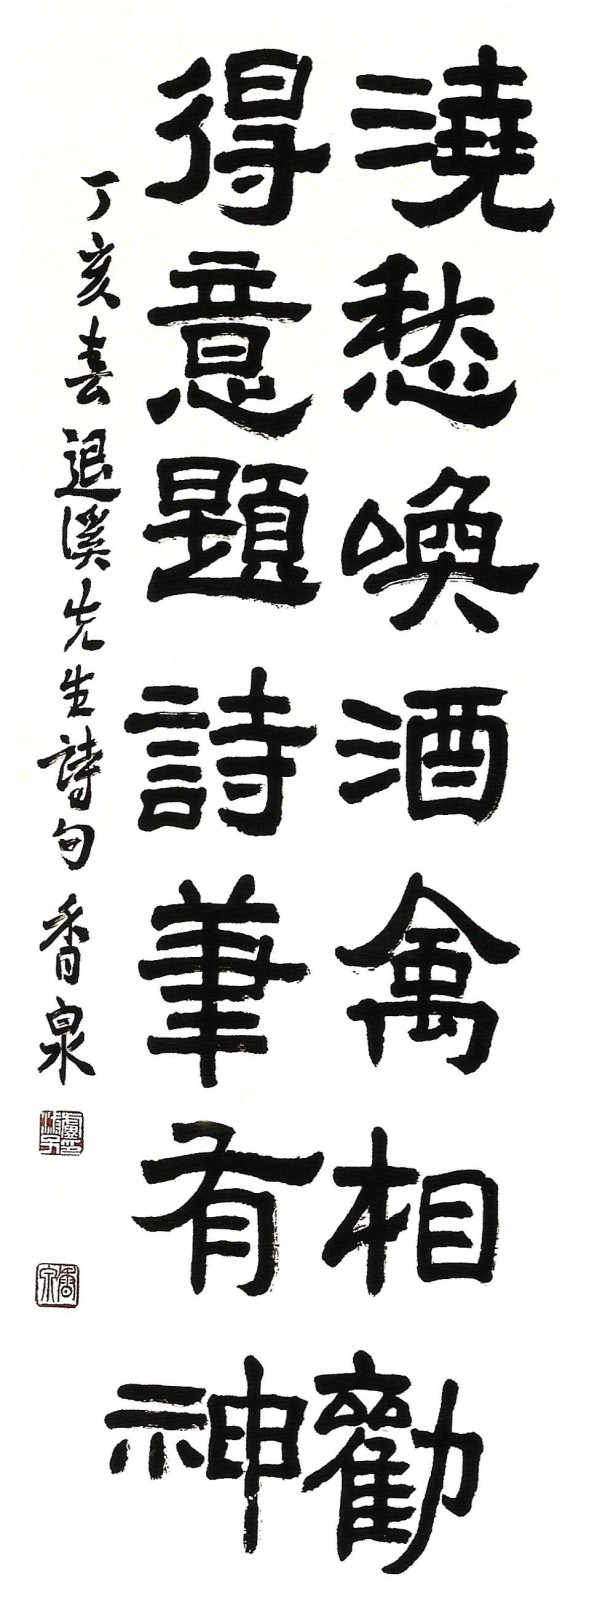 澆愁喚酒禽相勸
得意題詩筆有神
丁亥春退溪先生詩句香泉